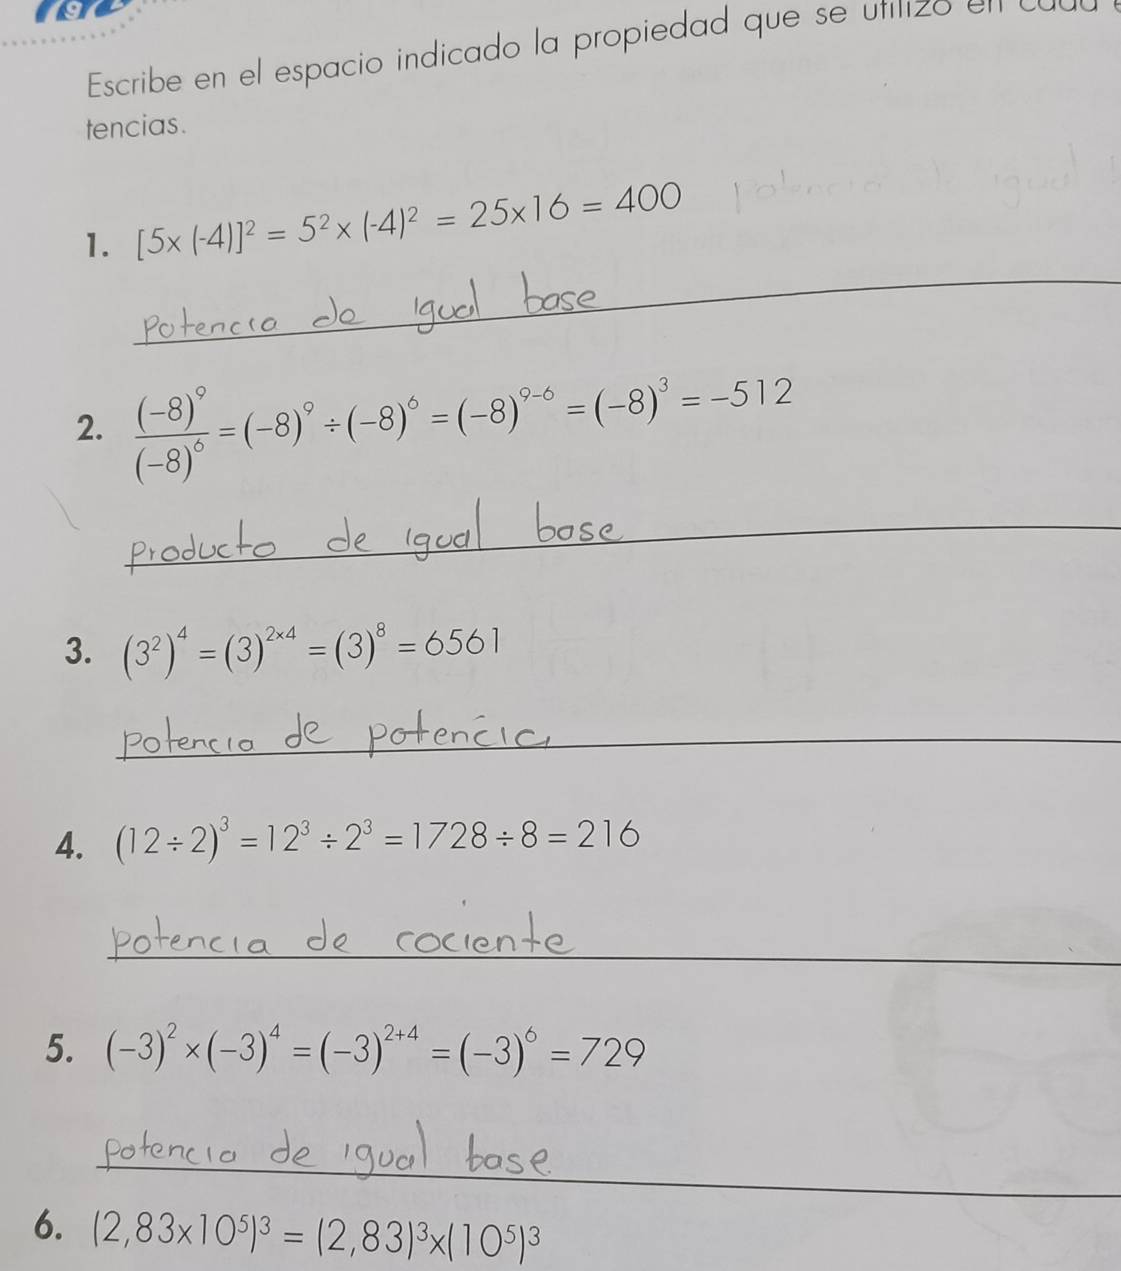 Escribe en el espacio indicado la propiedad que se utilizó en
tencias.
1. [5x(-4)]² = 5² x (-4)² = 25x16 = 400
potencia de igual base
2. (-8)⁹/(-8)⁶ = (-8)⁹ ÷ (-8)⁶ = (-8)⁹⁻⁶ = (-8)³ = -512
producto de igual base
3. (3²)⁴ = (3)²ˣ⁴ = (3)⁸ = 6561
potencia de potencia
4. (12÷2)³ = 12³ ÷ 2³ = 1728 ÷ 8 = 216
potencia de cociente
5. (-3)² × (-3)⁴ = (-3)²⁺⁴ = (-3)⁶ = 729
potencia de igual base.
6. (2,83x10⁵)³ = (2,83)³x(10⁵)³